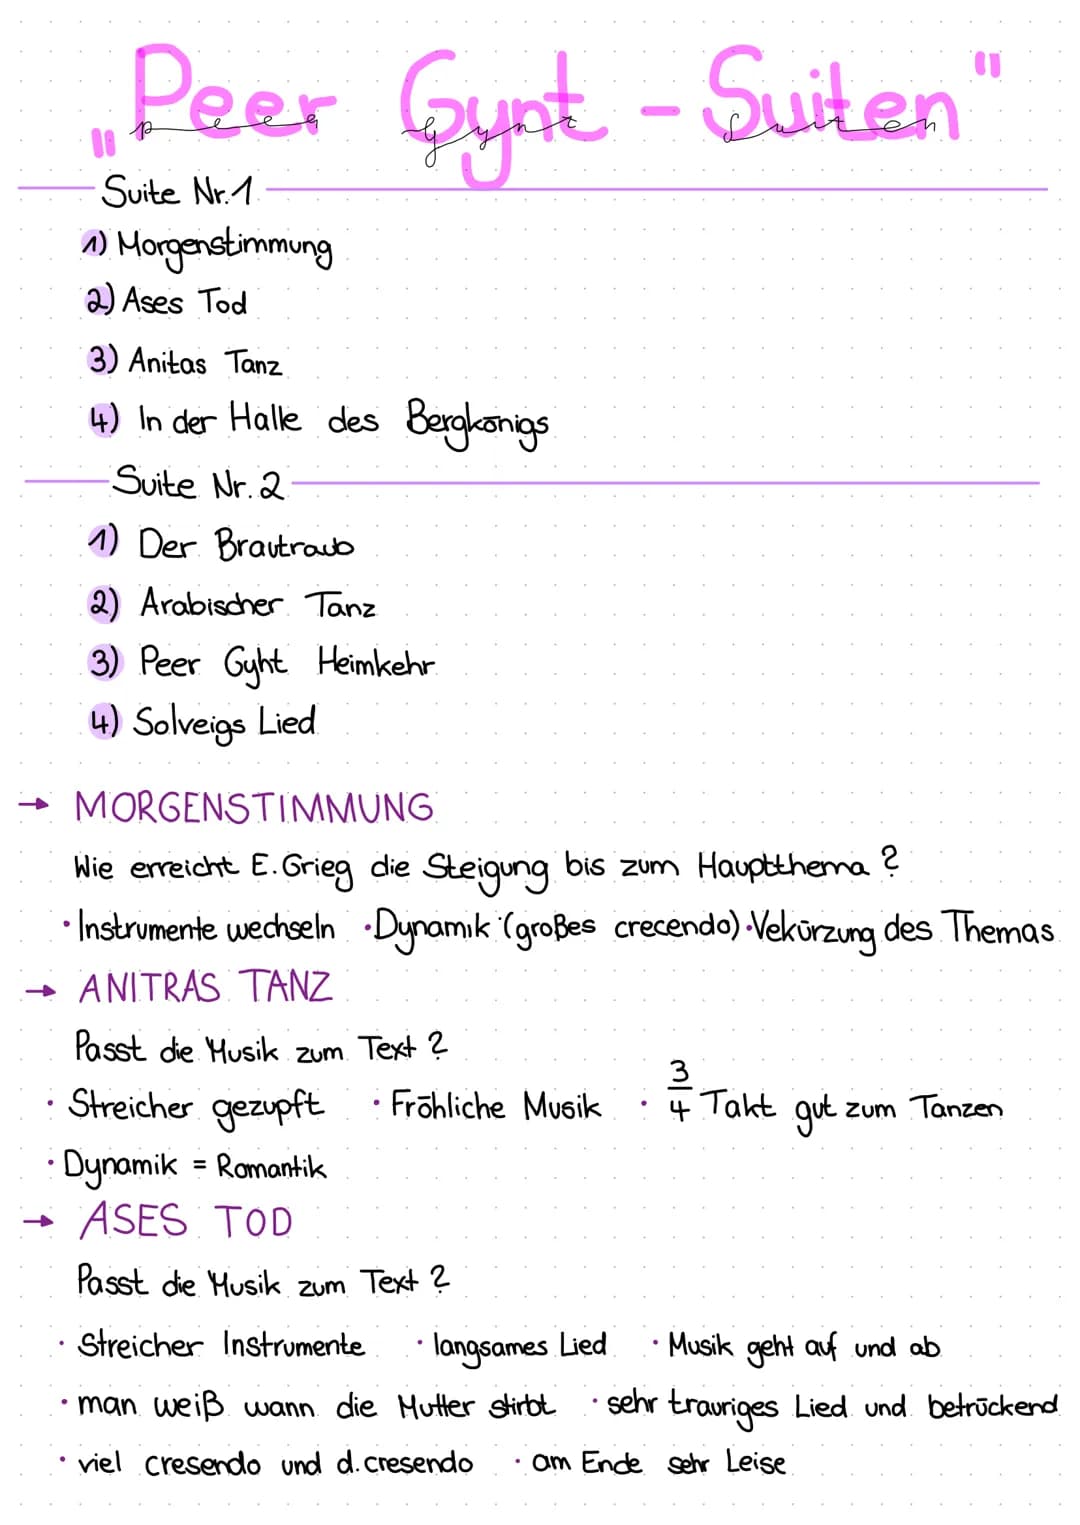 „Peer Gynt - Suiten"
Peer Gynt Suiten
Suite Nr. 1
1) Morgenstimmung
2) Ases Tod
3) Anitas Tanz
4) In der Halle des Bergkönigs
Suite Nr. 2
1) Der Brautraub
2) Arabischer Tanz
3) Peer Gyht Heimkehr
4) Solveigs Lied
→ MORGENSTIMMUNG
Wie erreicht E. Grieg die Steigung bis zum Hauptthema ?
• Instrumente wechseln • Dynamik (großes crecendo) • Vekürzung des Themas
→ ANITRAS TANZ
Passt die Musik zum Text ?
• Streicher gezupft • Fröhliche Musik • 3/4 Takt gut zum Tanzen
• Dynamik = Romantik
→ ASES TOD
Passt die Musik zum Text ?
• Streicher Instrumente • langsames Lied • Musik geht auf und ab
• man weiß wann die Mutter stirbt • sehr trauriges Lied und betrückend
• viel cresendo und d.cresendo • am Ende sehr Leise